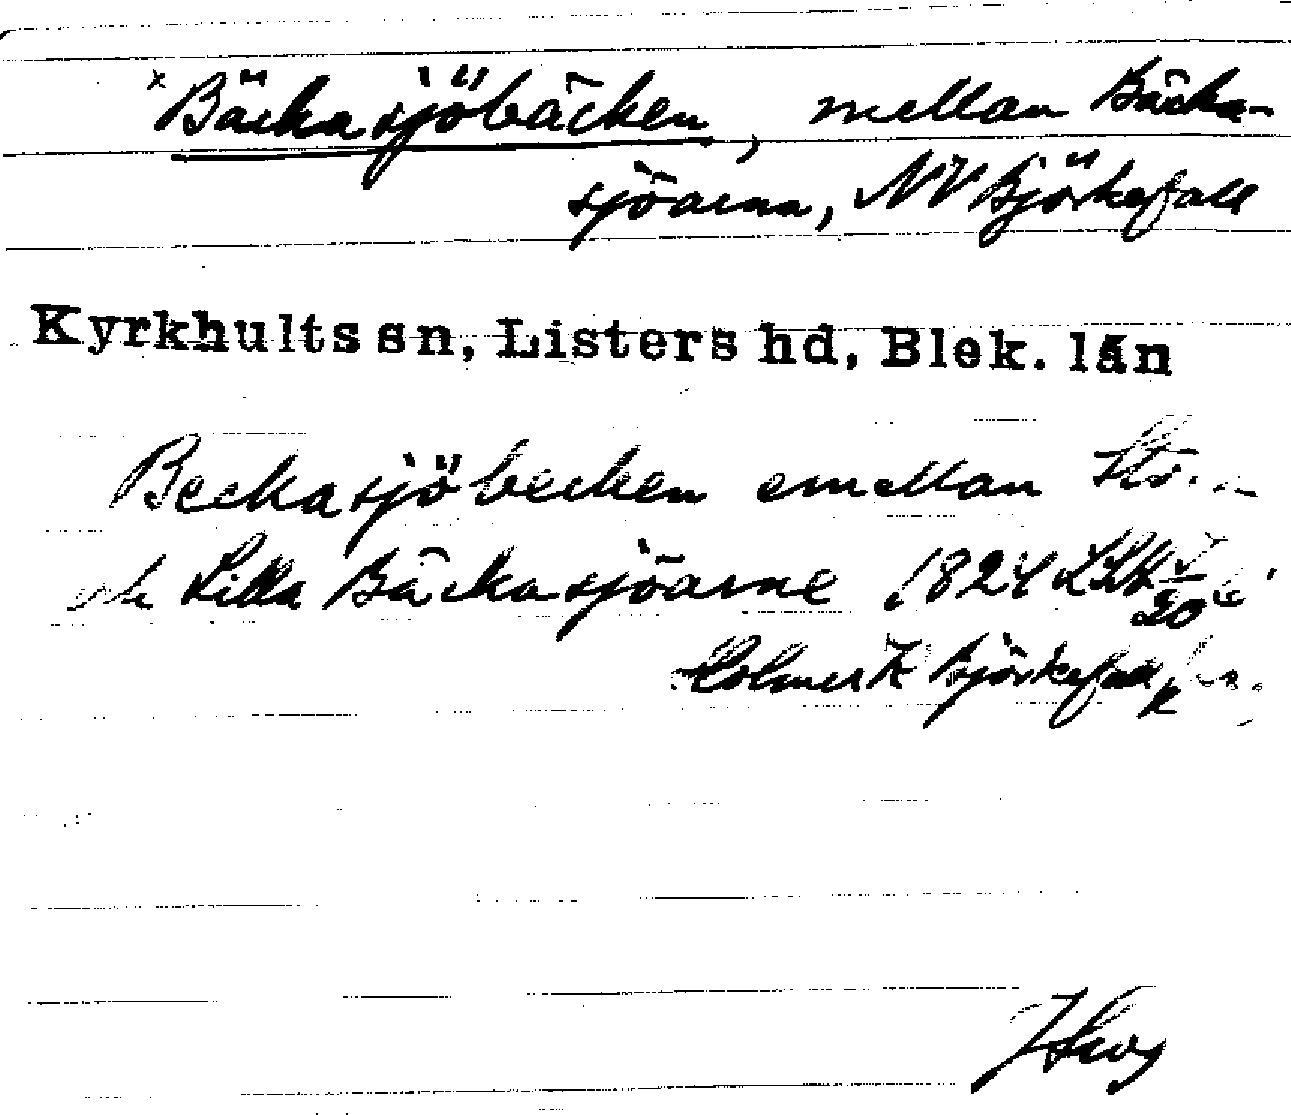 x Bäckasjöbäcken, mellan Bäcka-
sjöarna, NV Björkefall
Kyrkhults sn, Listers hd, Blek. län
Beckasjöbecken emellan Sto..
och Lilla Bäckasjöarne 1824 LSA
Björkefall